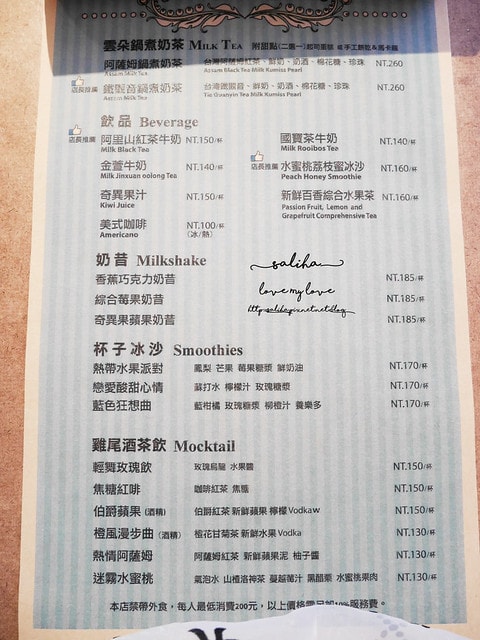 雲朵鍋煮奶茶 Milk Tea 附甜點(二選一)起司蛋糕 或 手工餅乾&馬卡龍
阿薩姆鍋煮奶茶 台灣阿薩姆紅茶、鮮奶、奶酒、棉花糖、珍珠 NT.260
Assam Milk Tea Assam Black Tea Milk Kumiss Pearl
店長推薦 鐵觀音鍋煮奶茶 台灣鐵觀音、鮮奶、奶酒、棉花糖、珍珠 NT.260
Assam Milk Tea Tie Guanyin Tea Milk Kumiss Pearl
飲品 Beverage
店長推薦 阿里山紅茶牛奶 NT.150/杯 國寶茶牛奶 NT.140/杯
Milk Black Tea Milk Rooibos Tea
金萱牛奶 NT.140/杯 店長推薦 水蜜桃荔枝蜜冰沙 NT.160/杯
Milk Jinxuan oolong Tea Peach Honey Smoothie
奇異果汁 NT.150/杯 新鮮百香綜合水果茶 NT.160/杯
Kiwi Juice Passion Fruit, Lemon and
Grapefruit Comprehensive Tea
美式咖啡 NT.100/杯
Americano (冰/熱)
奶昔 Milkshake
saliha
香蕉巧克力奶昔 NT.185/杯
love my love
綜合莓果奶昔 NT.185/杯
奇異果蘋果奶昔 NT.185/杯
杯子冰沙 Smoothies
熱帶水果派對 鳳梨 芒果 莓果糖漿 鮮奶油 NT.170/杯
戀愛酸甜心情 蘇打水 檸檬汁 玫瑰糖漿 NT.170/杯
藍色狂想曲 藍柑橘 玫瑰糖漿 柳橙汁 養樂多 NT.170/杯
雞尾酒茶飲 Mocktail
輕舞玫瑰飲 玫瑰烏龍 水果醋 NT.150/杯
焦糖紅啡 咖啡紅茶 焦糖 NT.150/杯
伯爵蘋果(酒精) 伯爵紅茶 新鮮蘋果 檸檬 Vodkaw NT.150/杯
橙風漫步曲(酒精) 橙花甘菊茶 新鮮水果 Vodka NT.130/杯
熱情阿薩姆 阿薩姆紅茶 新鮮蘋果泥 柚子醬 NT.130/杯
迷霧水蜜桃 氣泡水 山楂洛神茶 蔓越莓汁 黑醋栗 水蜜桃果肉 NT.130/杯
本店禁帶外食，每人最低消費200元，以上價格需另加10%服務費。